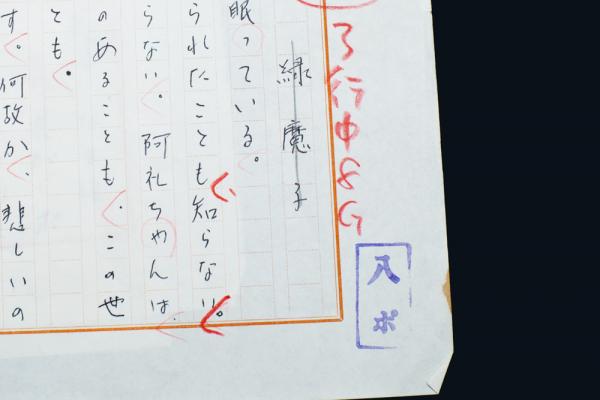 3行中8G
八ポ
緑魔子
眠っている。
られたことも知らない。
らない。阿礼ちゃんは
のあることも、この世
とも、
す。何故か、悲しいの